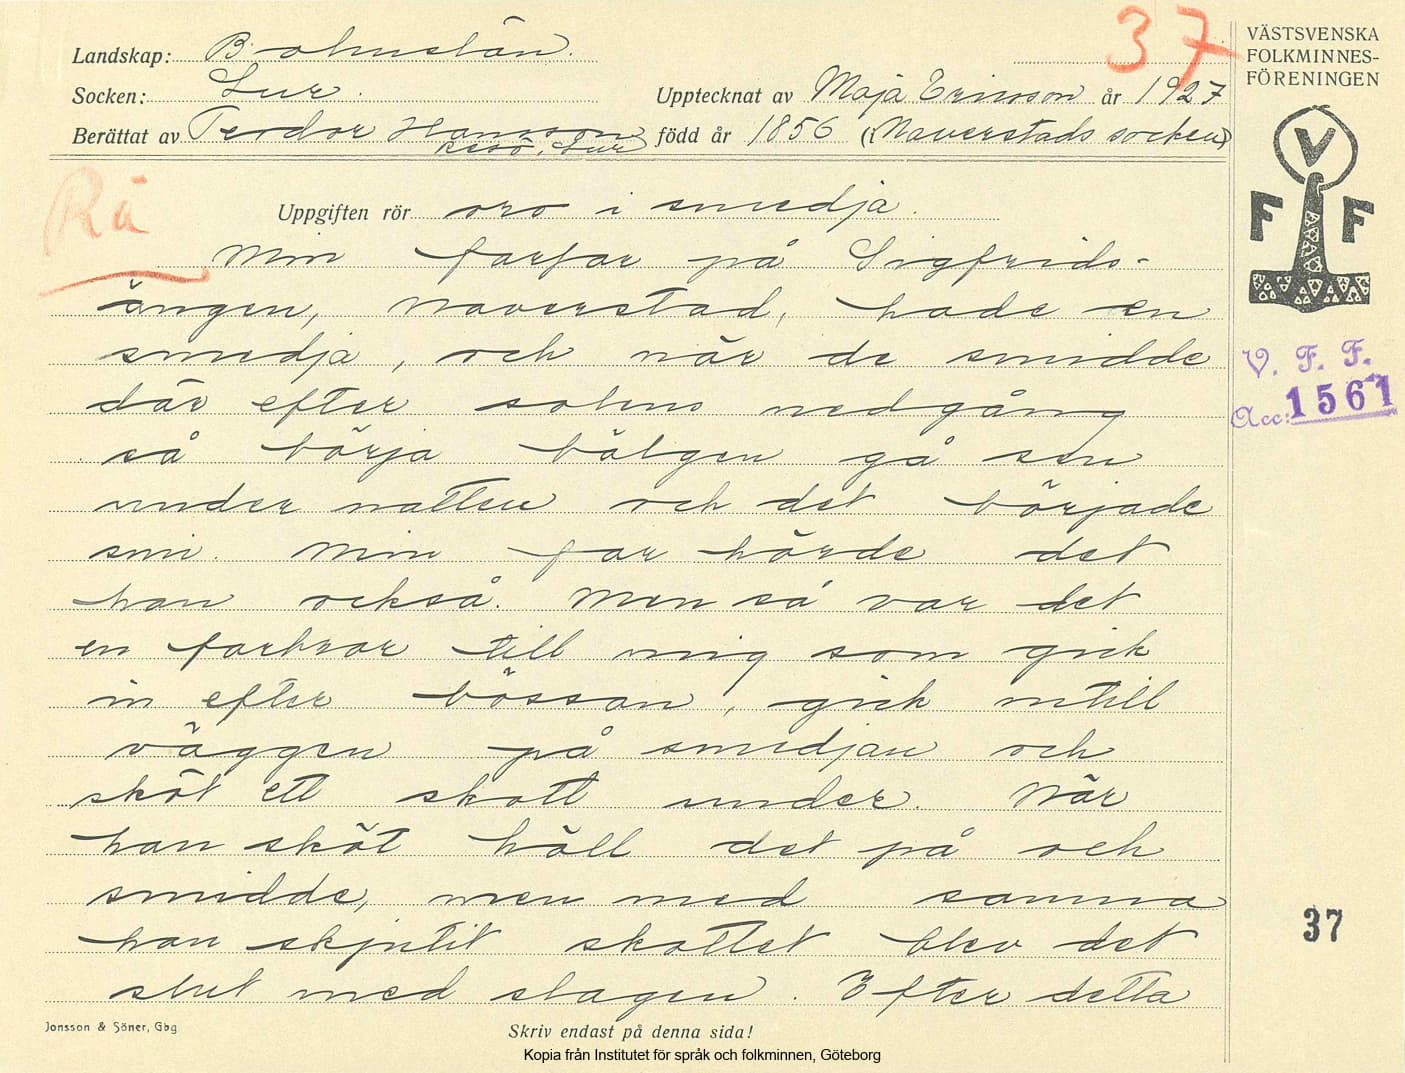 37
VÄSTSVENSKA
FOLKMINNES-
FÖRENINGEN
Landskap: Bohuslän.
Socken: Lur. Upptecknat av Maja Ericsson år 1927
Berättat av Teodor Hansson född år 1856 (i Naverstads socken)
Resö, Lur
Rå
Uppgiften rör oro i smedja.
V
F F
Min farfar på Sigfrids-
ängen, Naverstad, hade en
smedja, och när de smidde
där efter solens nedgång
så börja bälgen gå sen
under natten och det började
smi. Min far hörde det
han också. Men så var det
en farbror till mig som gick
in efter bössan, gick intill
väggen på smedjan och
sköt ett skott under. När
han sköt höll det på och
smidde, men med samma
han skjutit skottet blev det
slut med slagen. Efter detta
V. F. F.
Acc: 1561
37
Jonsson & Söner, Gbg
Skriv endast på denna sida!
Kopia från Institutet för språk och folkminnen, Göteborg